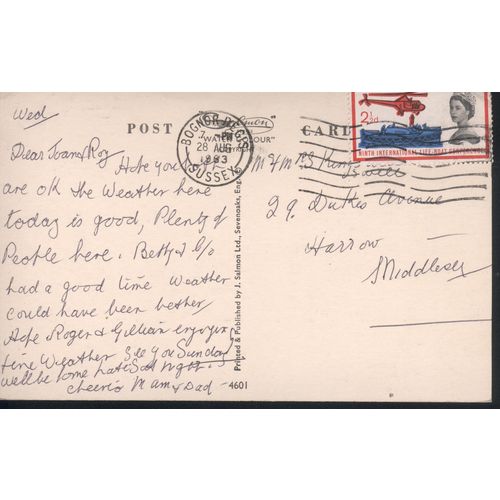 Wed
POST CARD
Salmon
"WATER COLOUR"
BOGNOR REGIS
28 AUG
1963
SUSSEX
2½d
NINTH INTERNATIONAL LIFE-BOAT CONFERENCE
Dear Joan & Roy
Hope you
are OK the Weather here
today is good, Plenty of
People here. Betty &
had a good time Weather
could have been better
Hope Roger & Gillian enjoying
fine Weather See You Sunday
will be home late Sat night.
cheerio Mam & Dad -
Printed & Published by J. Salmon Ltd., Sevenoaks, Eng.
4601
29 Dukes Avenue
Harrow
Middlesex